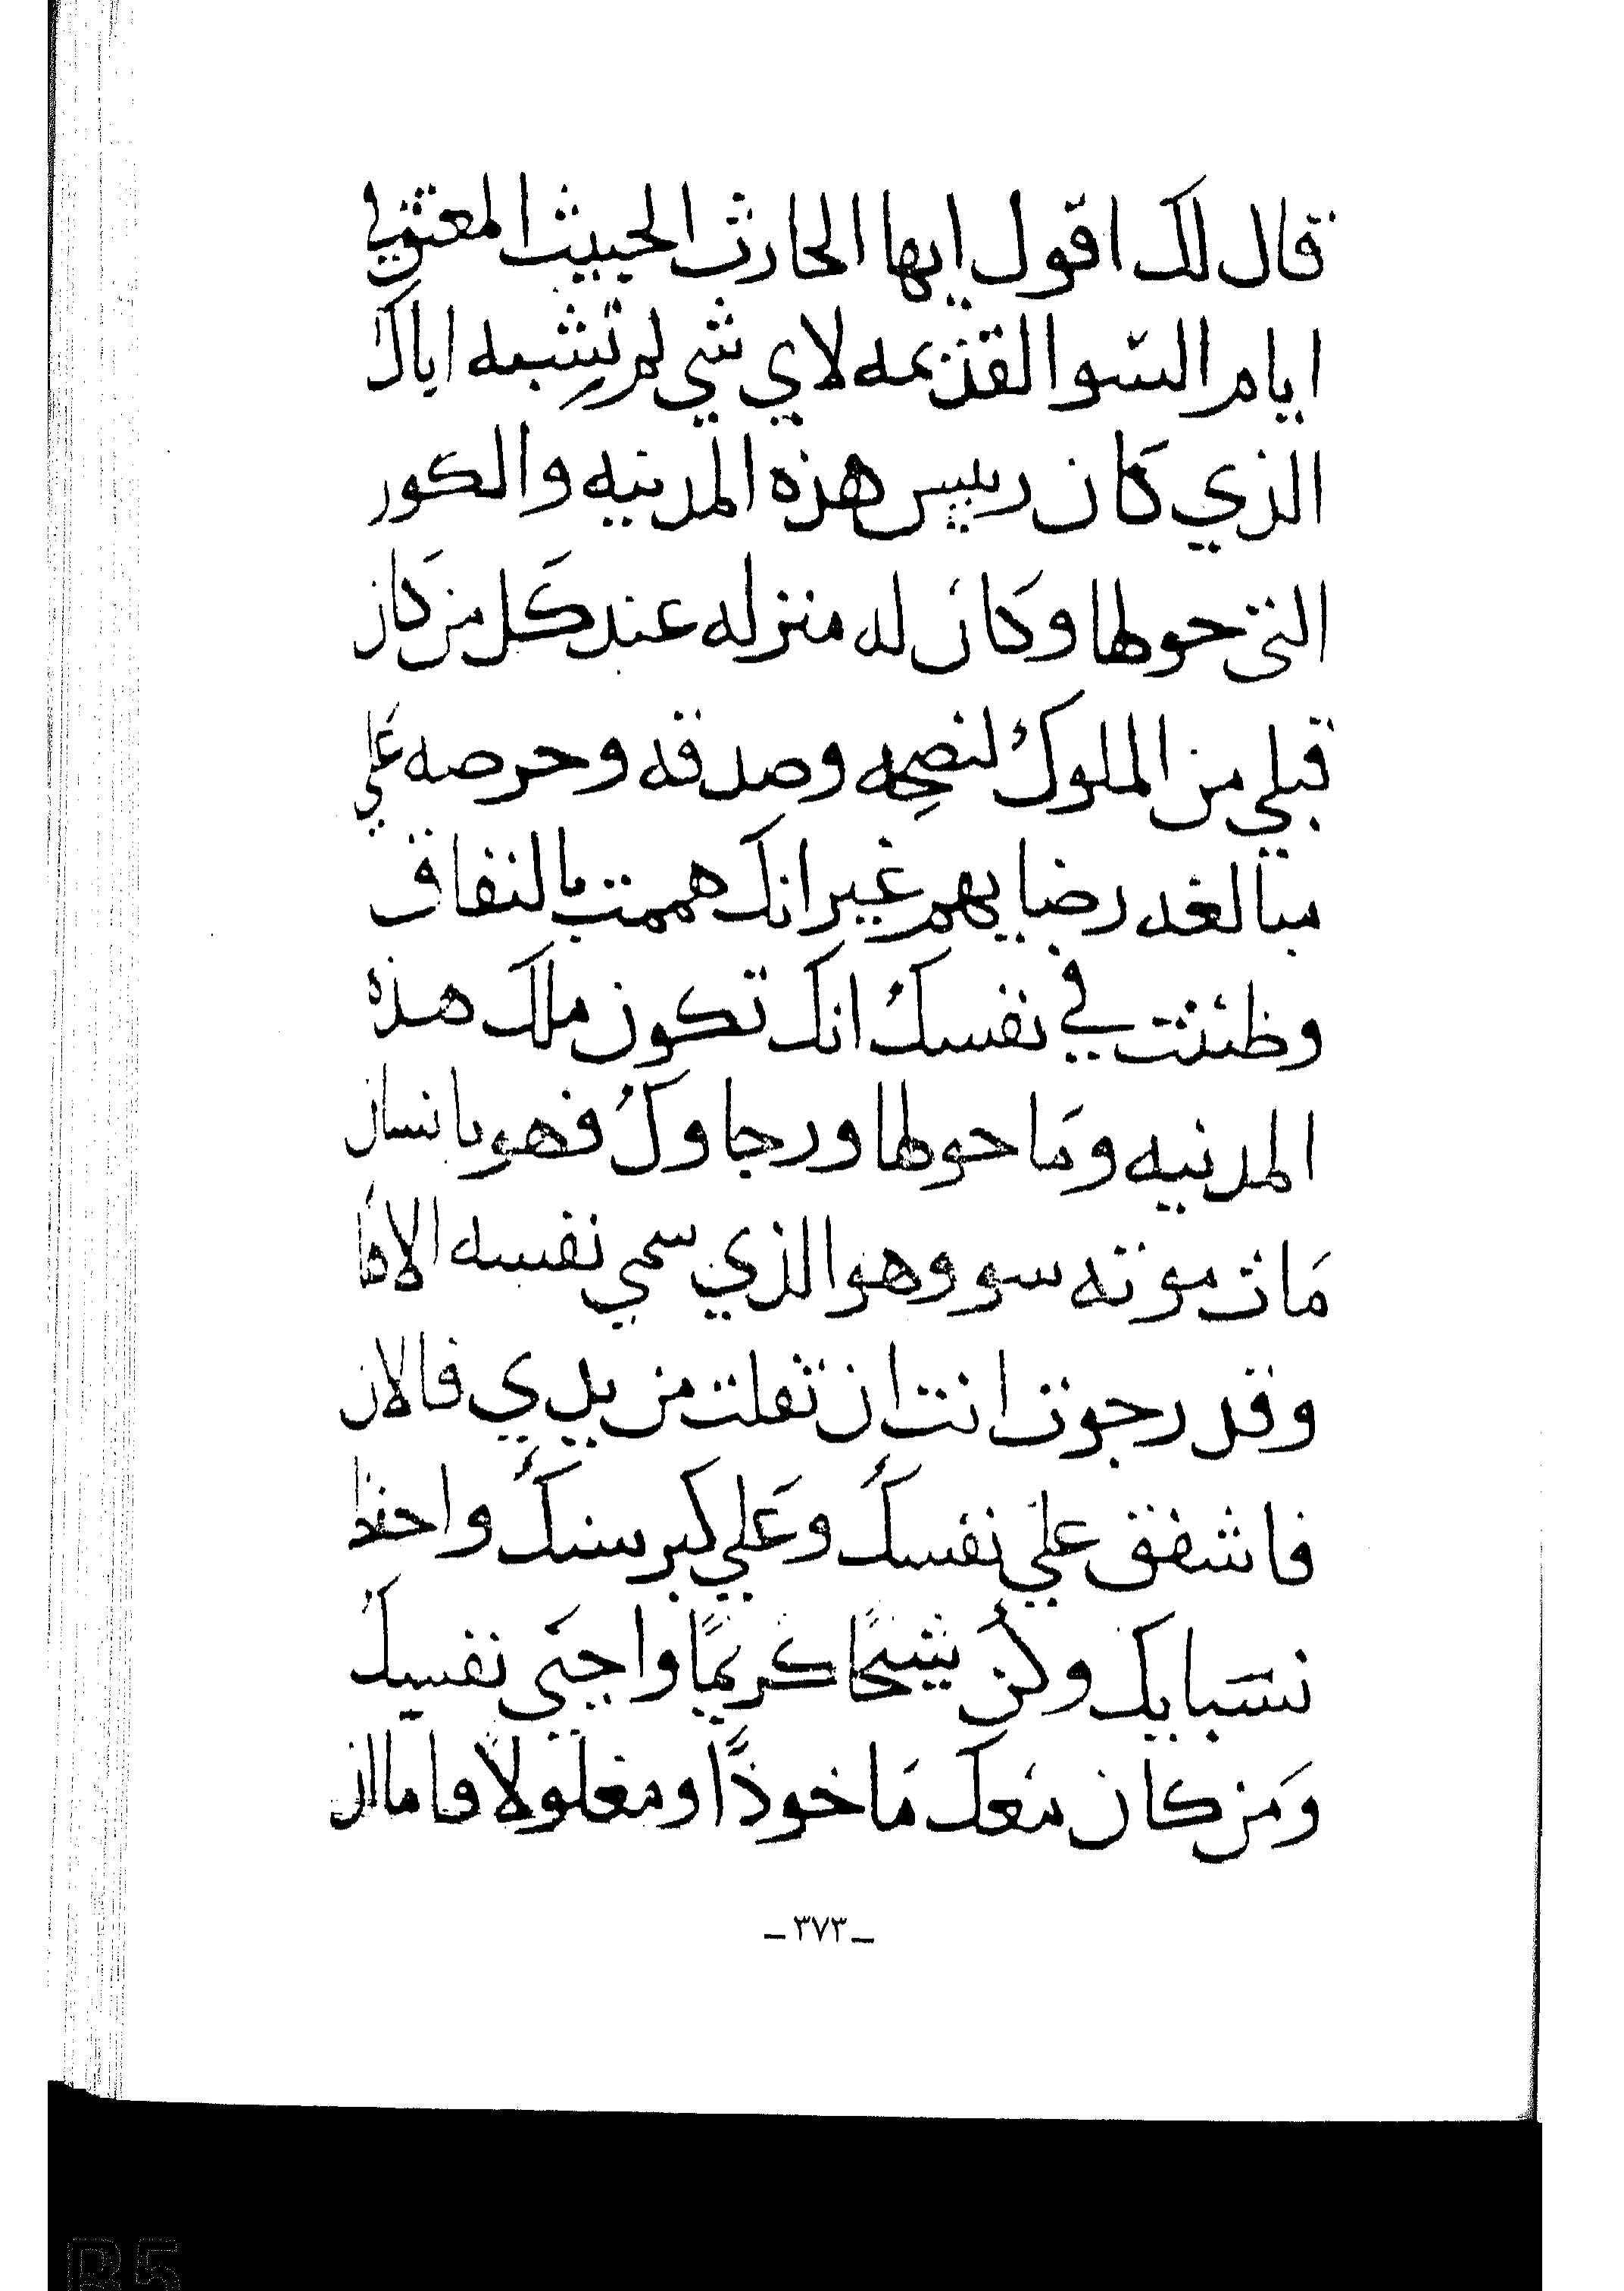 قال لك اقول ايها الحارث الخبيث المعتق في
ايام السو القديمه لاي شي لم تشبه اباك
الذي كان رييس هذه المدينه والكور
التي حولها وكان له منزله عند كل من كان
قبلي من الملوك لنصحه وصدقه وحرصه علي
مبالغه رضايهم غير انك هممت بالنفاق
وظننت في نفسك انك تكون ملك هذه
المدينه وما حولها ورجاوك فهو بانسان
مات موته سو وهو الذي سمي نفسه الاها
وقد رجوت انت ان تفلت من يدي فالان
فاشفق علي نفسك وعلي كبر سنك واحفظ
نسبايك وكن شيخا كريمًا واجي نفسك
ومن كان معك ماخوذًا ومغلولًا فاما ان
ـ ٣٧٣ ـ